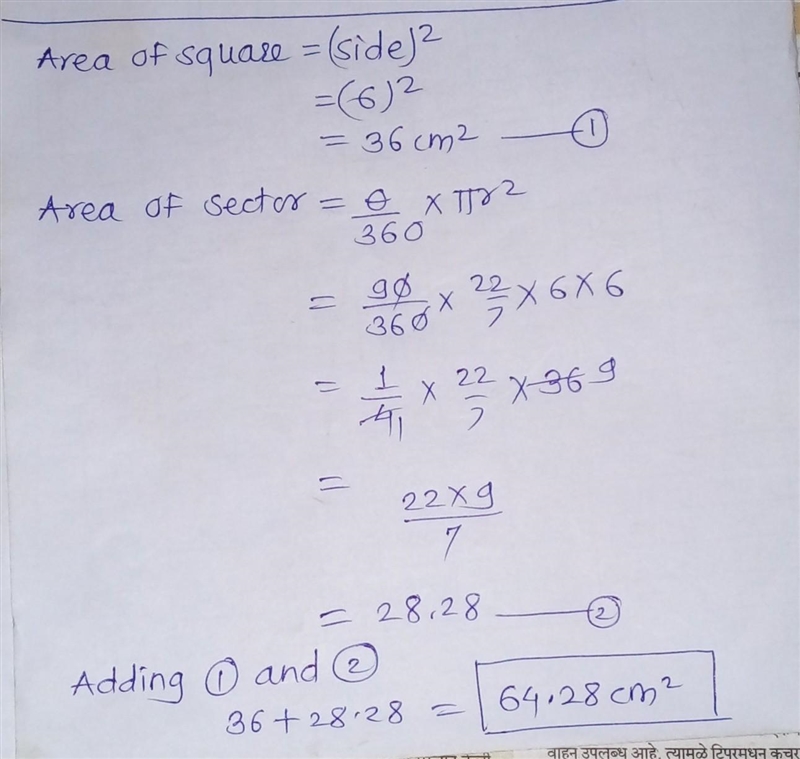 Area of square = (side)²
= (6)²
= 36 cm² —— ①
Area of sector = θ/360 × πr²
= 90/360 × 22/7 × 6 × 6
= 1/4 1 × 22/7 × 36 9
=
22 × 9/7
= 28.28 —— ②
Adding ① and ②
36 + 28.28 = 64.28 cm²
वाहन उपलब्ध आहे. त्यामळे टिपरमधन कचर